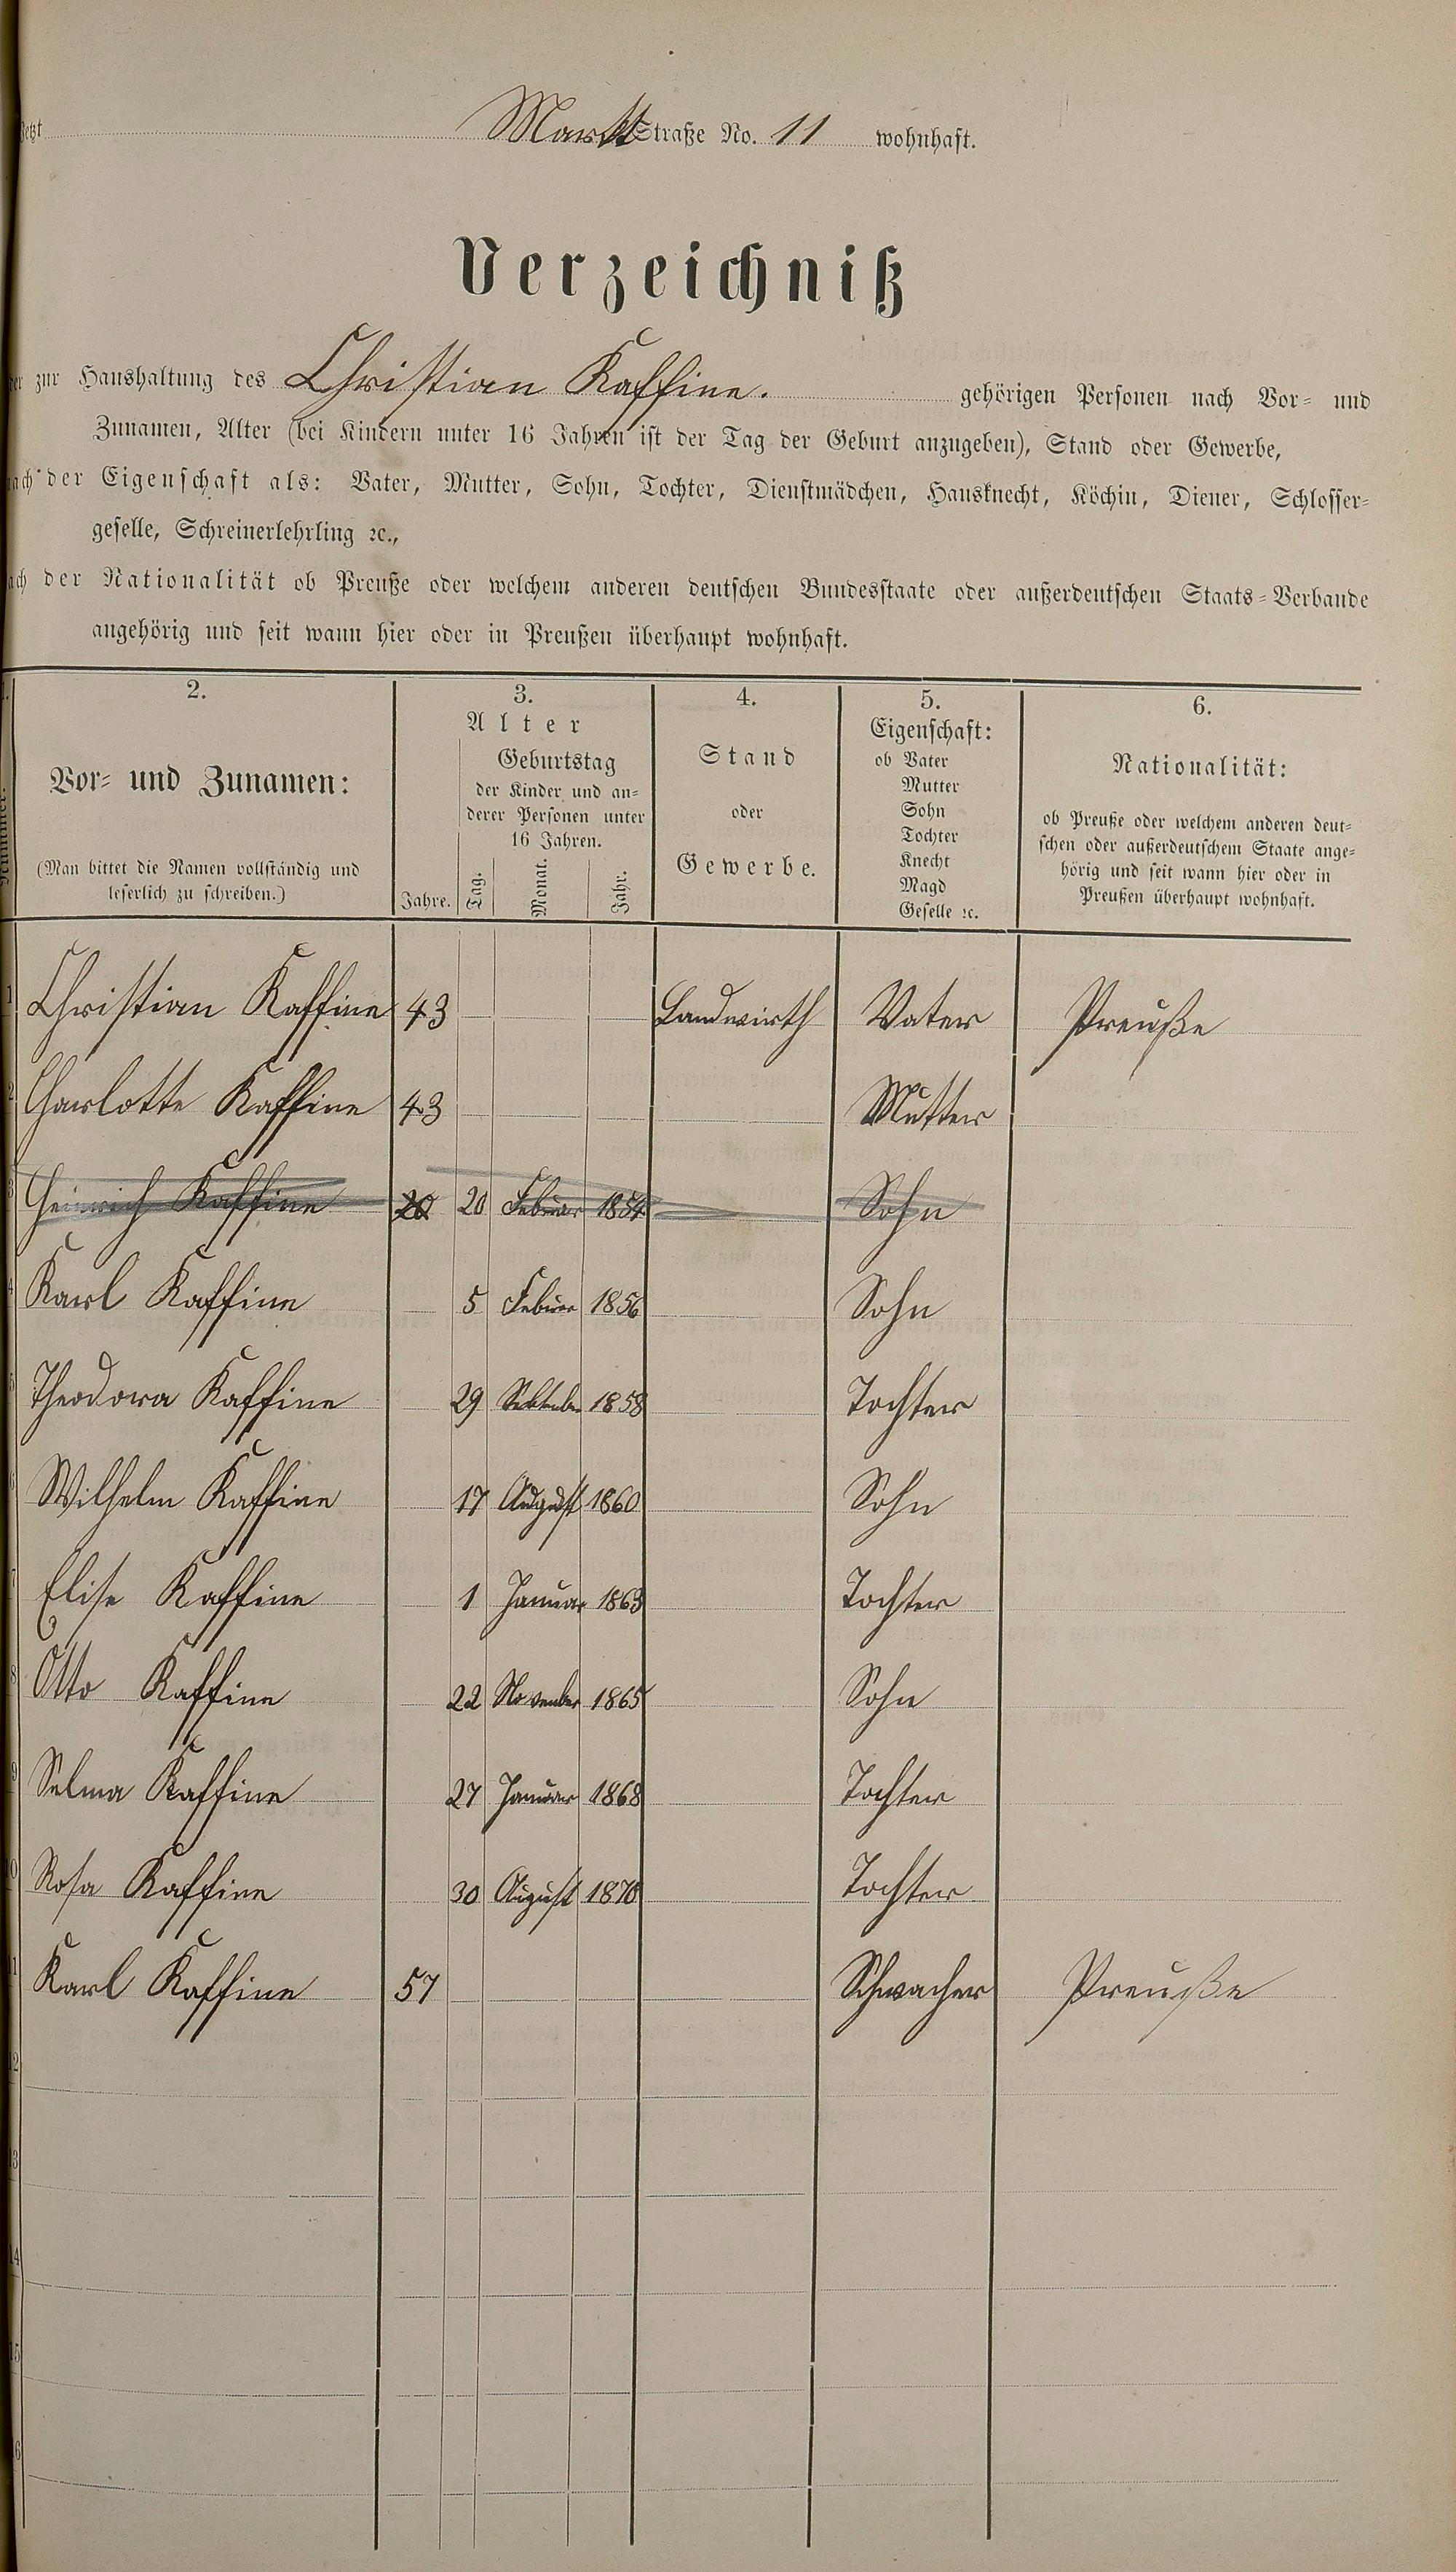 jetzt Markt Straße No. 11 wohnhaft.
Verzeichniß
der zur Haushaltung des Christian Kaffine. gehörigen Personen nach Vor- und
Zunamen, Alter (bei Kindern unter 16 Jahren ist der Tag der Geburt anzugeben), Stand oder Gewerbe,
nach der Eigenschaft als: Vater, Mutter, Sohn, Tochter, Dienstmädchen, Hausknecht, Köchin, Diener, Schlosser-
geselle, Schreinerlehrling ꝛc.,
nach der Nationalität ob Preuße oder welchem anderen deutschen Bundesstaate oder außerdeutschen Staats-Verbande
angehörig und seit wann hier oder in Preußen überhaupt wohnhaft.
2. 3. 4. 5. 6.
Nummer.
Vor- und Zunamen:
(Man bittet die Namen vollständig und
leserlich zu schreiben.)
Alter
Jahre.
Geburtstag
der Kinder und an-
derer Personen unter
16 Jahren.
Tag. Monat. Jahr.
Stand
oder
Gewerbe.
Eigenschaft:
ob Vater
Mutter
Sohn
Tochter
Knecht
Magd
Geselle ꝛc.
Nationalität:
ob Preuße oder welchem anderen deut-
schen oder außerdeutschem Staate ange-
hörig und seit wann hier oder in
Preußen überhaupt wohnhaft.
1 Christian Kaffine 43 Landwirth Vater Preuße
2 Charlotte Kaffine 43 Mutter
3 Heinrich Kaffine 20 20 Februar 1854 Sohn
4 Karl Kaffine 5 Februar 1856 Sohn
5 Theodora Kaffine 29 September 1858 Tochter
6 Wilhelm Kaffine 17 August 1860 Sohn
7 Elise Kaffine 1 Januar 1863 Tochter
8 Otto Kaffine 22 November 1865 Sohn
9 Selma Kaffine 27 Januar 1868 Tochter
10 Rosa Kaffine 30 August 1870 Tochter
11 Karl Kaffine 57 Schwacher Preuße
12
13
14
15
16